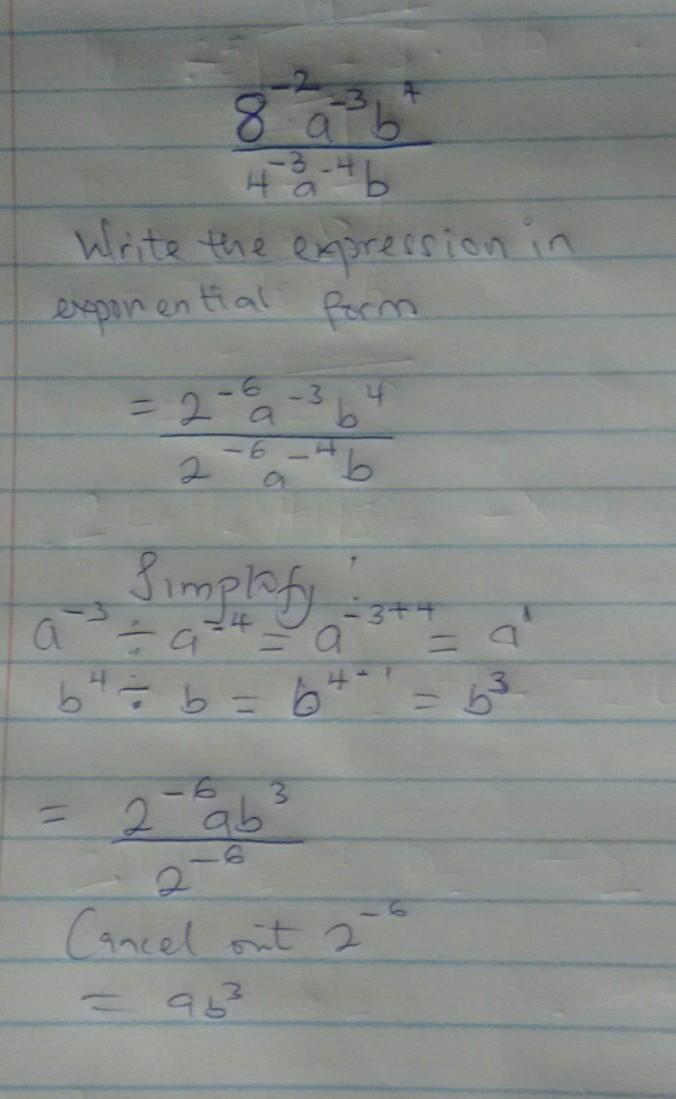 8⁻² a⁻³ b⁴
4⁻³ a⁻⁴ b
Write the expression in
exponential form
= 2⁻⁶ a⁻³ b⁴
2⁻⁶ a⁻⁴ b
Simplify
a⁻³ ÷ a⁻⁴ = a⁻³⁺⁴ = a¹
b⁴ ÷ b = b⁴⁻¹ = b³
= 2⁻⁶ab³
2⁻⁶
Cancel out 2⁻⁶
= ab³